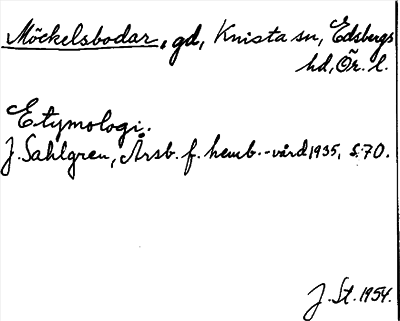 Möckelsbodar, gd, Knista sn, Edsbergs
hd, Ör. l.
Etymologi.
J. Sahlgren, Årsb. f. hemb.-vård 1935, s. 70.
J. St. 1954.